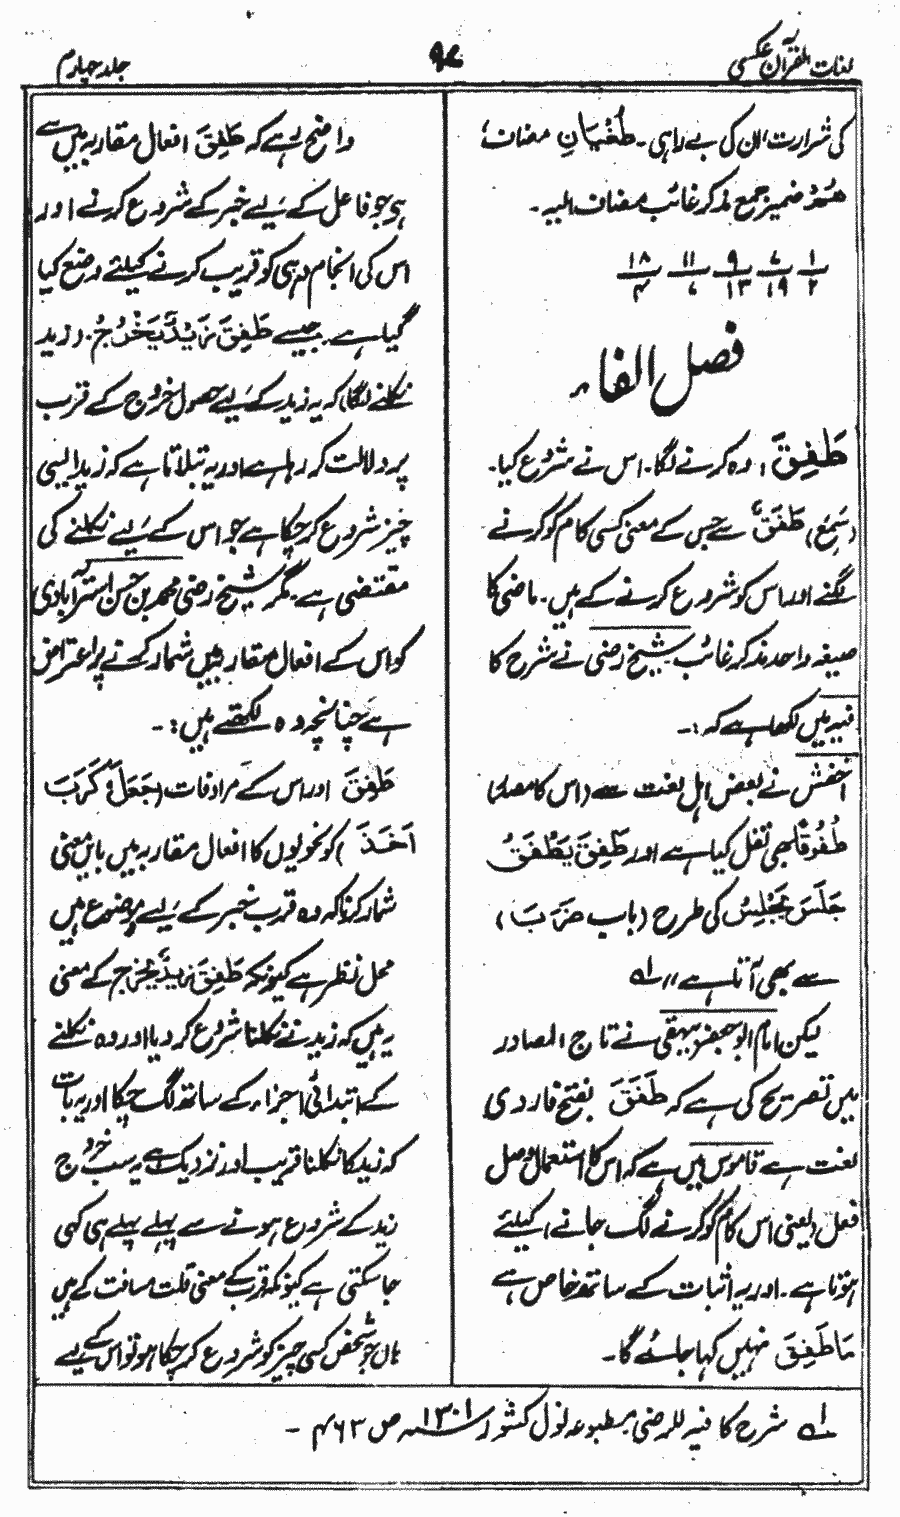 لغات القرآن عکسی
۹۲
جلد چہارم
کی شرارت، ان کی بے راہی۔ طُغْیَانِ مضاف،
ھُمْ ضمیر جمع مذکر غائب مضاف الیہ۔
۱/۲ ۷/۱۹ ۹/۱۳ ۱۱/۷ ۱۸/۴
فصل الفاء
طَفِقَ، وہ کرنے لگا۔ اس نے شروع کیا۔
(سَمِعَ) طَفَقٌ سے جس کے معنی کسی کام کو کرنے
لگنے اور اس کو شروع کرنے کے ہیں۔ ماضی کا
صیغہ واحد مذکر غائب شیخ رضی نے شرح کا
فیہ میں لکھا ہے کہ :۔
اخفش نے بعض اہل لغت سے (اس کا مصدر)
طُفُوْقًا بھی نقل کیا ہے اور طَفَقَ یَطْفِقُ
جَلَسَ یَجْلِسُ کی طرح (باب ضَرَبَ)
سے بھی آتا ہے ،، لہ
لیکن امام ابو جعفر بیہقی نے تاج المصادر
میں تصریح کی ہے کہ طَفَقَ بفتح فاردی
لغت ہے قاموس میں ہے کہ اس کا استعمال وصل
فعل (یعنی اس کام کو کرنے لگ جانے) کیلئے
ہوتا ہے۔ اور یہ اثبات کے ساتھ خاص ہے
مَا طَفِقَ نہیں کہا جائے گا۔
واضح رہے کہ طَفِقَ افعال مقاربہ میں سے
ہے جو فاعل کے لیے خبر کے شروع کرنے اور
اس کی انجام دہی کو قریب کرنے کیلئے وضع کیا
گیا ہے۔ جیسے طَفِقَ زَیْدٌ یَخْرُجُ۔ زید
نکلنے لگا، کہ یہ زید کے لیے حصول خروج کے قرب
پر دلالت کر رہا ہے اور یہ بتلاتا ہے کہ زید ایسی
چیز شروع کر چکا ہے جو اس کے لیے نکلنے کی
مقتضی ہے۔ مگر شیخ رضی محمد بن حسن استرآبادی
کو اس کے افعال مقاربہ میں شمار کرنے پر اعتراض
ہے چنانچہ وہ لکھتے ہیں :۔
طَفِقَ اور اس کے مرادفات (جَعَلَ، کَرَبَ
اَخَذَ) کو نحویوں کا افعال مقاربہ میں بایں معنی
شمار کرنا کہ وہ قرب خبر کے لیے موضوع ہیں
محل نظر ہے کیونکہ طَفِقَ زیدٌ یخرج کے معنی
یہ ہیں کہ زید نے نکلنا شروع کر دیا اور وہ نکلنے
کے ابتدائی اجزاء کے ساتھ لگ چکا اور یہ بات
کہ زید کا نکلنا قریب اور نزدیک ہے یہ سبب خروج
زید کے شروع ہونے سے پہلے پہلے ہی کہی
جا سکتی ہے کیونکہ قرب کے معنی قلت مسافت کے ہیں
ہاں جو شخص کسی چیز کو شروع کر چکا ہو تو اس کے لیے
لہ شرح کافیہ للرضی مطبوعہ نول کشور ۱۳۰۱ ص ۴۶۳ ۔